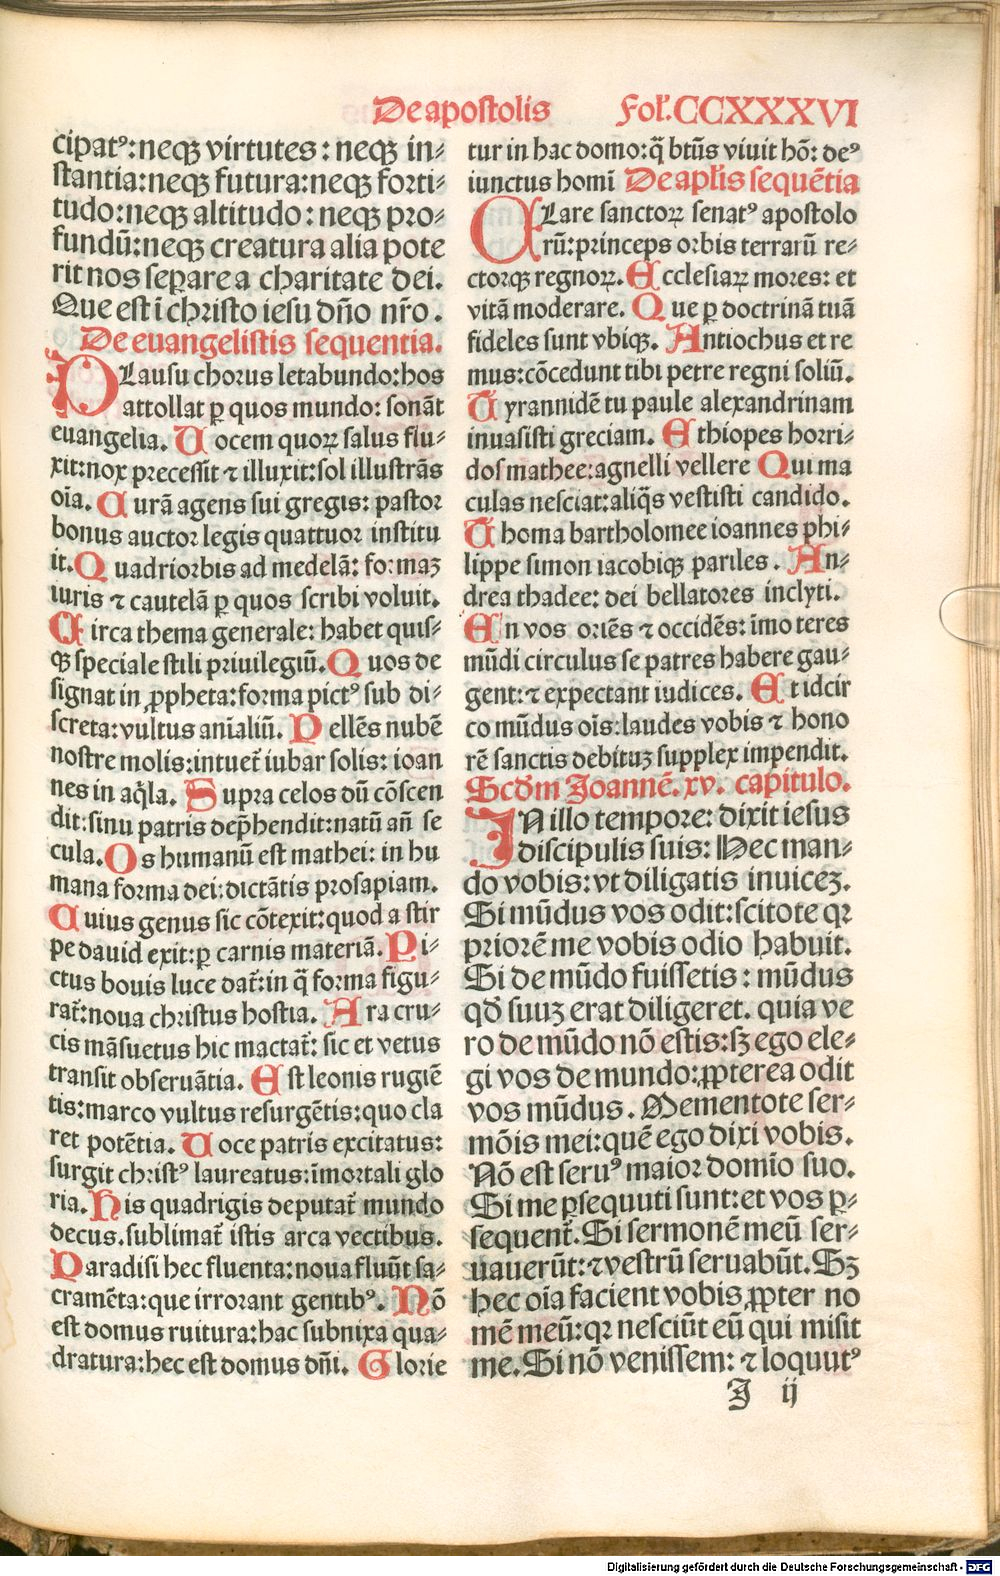 De apostolis Fol'. CCXXXVI
cipatꝰ: neqꝫ virtutes: neqꝫ in⸗
stantia: neqꝫ futura: neqꝫ forti⸗
tudo: neqꝫ altitudo: neqꝫ pro⸗
fundū: neqꝫ creatura alia pote
rit nos seꝑare a charitate dei.
Que est ī christo iesu dn̄o nr̄o.
De euangelistis sequentia.
PLausu chorus letabundo: hos
attollat ꝑ quos mundo: sonāt
euangelia. Uocem quoꝝ salus flu⸗
xit: nox precessit ⁊ illuxit: sol illustrās
oīa. Curā agens sui gregis: pastor
bonus auctor legis quattuor institu
it. Quadriorbis ad medelā: formaꝫ
iuris ⁊ cautelā ꝑ quos scribi voluit.
Circa thema generale: habet quis⸗
qꝫ speciale stili priuilegiū. Quos de
signat in ꝓpheta: forma pictꝰ sub di⸗
screta: vultus aīaliū. Pellēs nubē
nostre molis: intuet᷑ iubar solis: ioan
nes in aq̄la. Supra celos dū cōscen
dit: sinu patris dep̄hendit: natū an̄ se
cula. Os humanū est mathei: in hu
mana forma dei: dictātis prosapiam.
Cuius genus sic cōtexit: quod a stir
pe dauid exit: ꝑ carnis materiā. Pi⸗
ctus bouis luce dat᷑: in q̄ forma figu⸗
rat᷑: noua christus hostia. Ara cru⸗
cis māsuetus hic mactat᷑: sic et vetus
transit obseruātia. Est leonis rugiē
tis: marco vultus resurgētis: quo cla
ret potētia. Uoce patris excitatus:
surgit christꝰ laureatus: īmortali glo
ria. His quadrigis deputat᷑ mundo
decus. sublimat᷑ istis arca vectibus.
Paradisi hec fluenta: noua fluūt sa⸗
cramēta: que irrorant gentibꝰ. Nō
est domus ruitura: hac subnixa qua⸗
dratura: hec est domus dn̄i. Glorie
tur in hac domo: q̄ bt̄us viuit hō: deꝰ
iunctus homī De apl'is sequētia
CLare sanctoꝝ senatꝰ apostolo
rū: princeps orbis terrarū re⸗
ctorqꝫ regnoꝝ. Ecclesiaꝝ mores: et
vitā moderare. Que ꝑ doctrinā tuā
fideles sunt vbiqꝫ. Antiochus et re
mus: cōcedunt tibi petre regni soliū.
Tyrannidē tu paule alexandrinam
inuasisti greciam. Ethiopes horri⸗
dos mathee: agnelli vellere Qui ma
culas nesciat: aliq̄s vestisti candido.
Thoma bartholomee ioannes phi⸗
lippe simon iacobiqꝫ pariles. An⸗
drea thadee: dei bellatores inclyti.
En vos oriēs ⁊ occidēs: īmo teres
mūdi circulus se patres habere gau⸗
gent: ⁊ expectant iudices. Et idcir
co mūdus oīs: laudes vobis ⁊ hono
rē sanctis debituꝫ supplex impendit.
Scd̄m Joannē. xv. capitulo.
IN illo tempore: dixit iesus
discipulis suis: Hec man⸗
do vobis: vt diligatis inuiceꝫ.
Si mūdus vos odit: scitote qꝛ
priorē me vobis odio habuit.
Si de mūdo fuissetis: mūdus
qd̄ suuꝫ erat diligeret. quia ve
ro de mūdo nō estis: sꝫ ego ele⸗
gi vos de mundo: ꝓpterea odit
vos mūdus. Mementote ser⸗
mōis mei: quē ego dixi vobis.
Nō est seruꝰ maior domīo suo.
Si me ꝑsequuti sunt: et vos ꝑ⸗
sequent᷑. Si sermonē meū ser⸗
uauerūt: ⁊ vestrū seruabūt. Sꝫ
hec oīa facient vobis ꝓpter no
mē meū: qꝛ nesciūt eū qui misit
me. Si nō venissem: ⁊ loquutꝰ
J ij
Digitalisierung gefördert durch die Deutsche Forschungsgemeinschaft - DFG